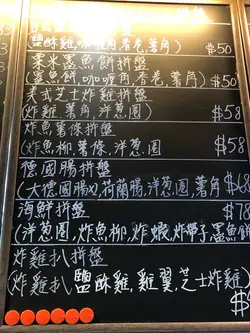 鹽酥雞,咖喱角,春卷,薯角) $50
粟米墨魚餅拼盤
(墨魚餅,咖喱角,春卷,薯角) $50
美式芝士炸雞拼盤
(炸雞,薯角,洋葱圈) $58
炸魚薯條拼盤
(炸魚柳,薯條,洋葱圈 $58
德國腸拼盤
(大德國腸x1,荷蘭腸,洋葱圈,薯角 $68
海鮮拼盤 $78
(洋葱圈,炸魚柳,炸蝦,炸帶子,墨魚餅
炸雞扒拼盤
(炸雞扒,鹽酥雞,雞翼,芝士炸雞) $